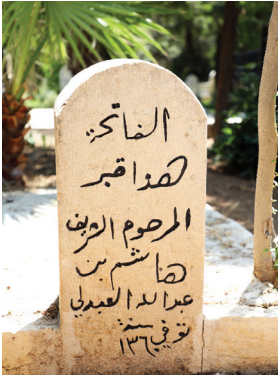 الفاتحة
هذا قبر
المرحوم الشريف
هاشم بن
عبدالله العبدلي
توفي سنة
١٣٦١